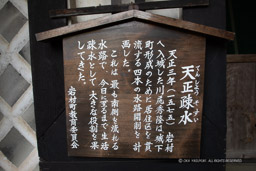 天正疎水
てんしょう そすい
天正三年(一五七五)岩村
へ入城した川尻秀隆は城下
町形成のために居住区を貫
流する四本の水路開削を計
画した。
これは、最も南側を流れる
水路で、今日に至るまで生活
疎水として大きな役割を果
してきた。
岩村町教育委員会